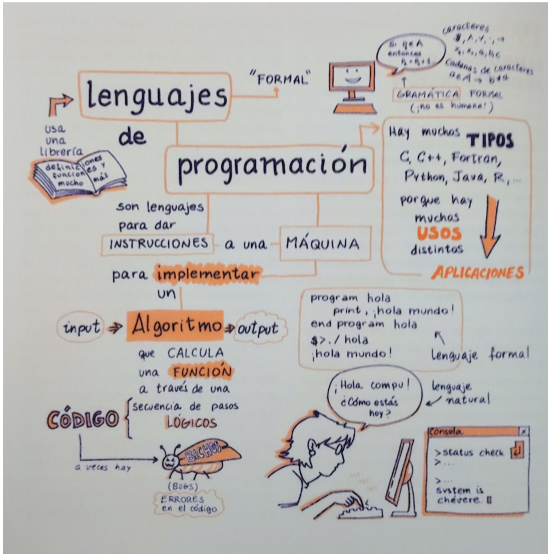 lenguajes
de
programación
"FORMAL"
Si q∈A
entonces
caracteres
cadenas de caracteres
GRAMÁTICA FORMAL
(¡no es humana!)
usa
una
librería
definiciones
funciones y
mucho más
Hay muchos TIPOS
C, C++, Fortran,
Python, Java, R,...
porque hay
muchos
USOS
distintos
APLICACIONES
son lenguajes
para dar
INSTRUCCIONES a una MÁQUINA
para implementar
un
input Algoritmo output
que CALCULA
una FUNCIÓN
a través de una
secuencia de pasos
LÓGICOS
CÓDIGO
a veces hay
BICHOS
(BUGS)
ERRORES
en el código
program hola
print, ¡hola mundo!
end program hola
$>./hola
¡hola mundo!
lenguaje formal
¡Hola compu!
¿Cómo estás
hoy?
lenguaje
natural
Consola x
>status check
>...
>...
system is
chévere.